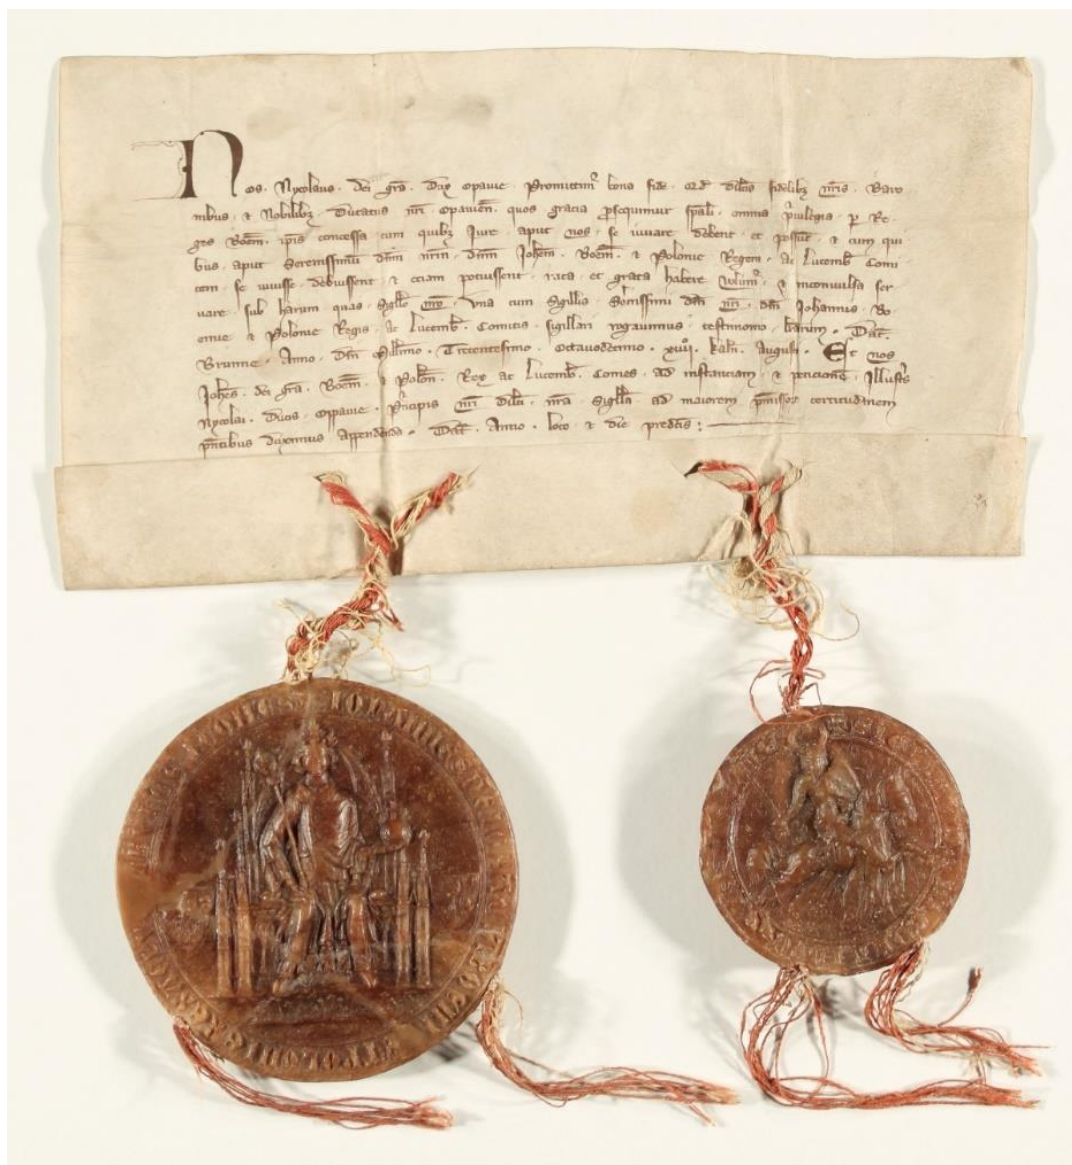 Nos. Nycolaus. dei gra. Dux Opauie. Promittim bona fide. qd Dilcis fidelibz nris. Baro
nibus. et Nobilibz. Ducatus nri. Opauien. quos gracia psequimur spali. omnia priuilegia. p Re-
ges Boem. ipis concessa. cum quibz Jure. aput nos. se iuuare debent. et possut. et cum qui
bus. aput Serenissimu dnm nrm. dnm Johem. Boem. et Polonie Regem. ac Lucemb Comi
tem. se iuuisse. debuissent. et eciam potuissent. rata. et grata habere volum. et inconuulsa ser
uare. sub harum quas. Sigillo nro. vna cum Sigillis. dni nri. dni Johannis. Bo
emie et Polonie Regis. ac Lucemb. Comitis. sigillari testimonio. Dat.
Brunne. Anno. Dni Millimo. Trecentesimo. Octauodecimo. kaln. Augusti. Et nos
Johes. dei gra. Boem. et Polon. Rex ac Lucemb. Comes. ad instanciam. et peticione. Illustris
Nycolai. Ducis. Oppauie. Pncipis nri Dilci. nra Sigilla ad maiorem pmissor certitudinem
pntibus duximus appendenda. Dat. Anno. loco et die predcis: